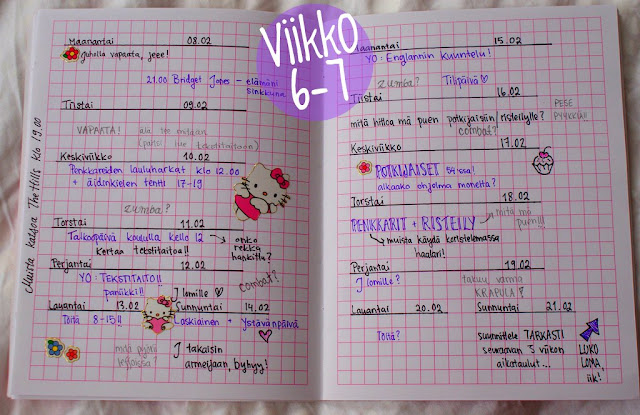 Viikko
6-7
Muista katsoa The Hills klo 19.00
Maanantai 08.02
Juholla vapaata, jeee!
21.00 Bridget Jones - elämäni
sinkkuna
Tiistai 09.02
VAPAATA! älä tee mitään
(paitsi lue tekstitaitoon)
Keskiviikko 10.02
Penkkareiden lauluharkat klo 12.00
+ äidinkielen tentti 17-19
zumba?
Torstai 11.02
Talkoopäivä koululla kello 12
Kertaa tekstitaitoa!!
onko
rekka
hankittu?
Perjantai 12.02
YO: TEKSTITAITO!!
paniikki!!
J lomille ♡
combat?
Lauantai 13.02
Töitä 8-15!!
Sunnuntai 14.02
Laskiainen + Ystävänpäivä
mitä
J takaisin
armeijaan, byhyy!
Maanantai 15.02
YO: Englannin kuuntelu!
zumba? Tilipäivä ♡
Tiistai 16.02
mitä hittoa mä puen potkijaisiin/risteilylle?
combat?
PESE
PYYKKIÄ!!
Keskiviikko 17.02
POTKIJAISET
alkaako ohjelma monelta?
Torstai 18.02
PENKKARIT + RISTEILY
mitä mä
puen!!!
muista käydä koristelemassa
haalari!
Perjantai 19.02
J lomille?
takuu varma
KRAPULA?
Lauantai 20.02
Töitä?
Sunnuntai 21.02
suunnittele TARKASTI
seuraavan 3 viikon
aikataulut...
LUKU
LOMA,
iik!